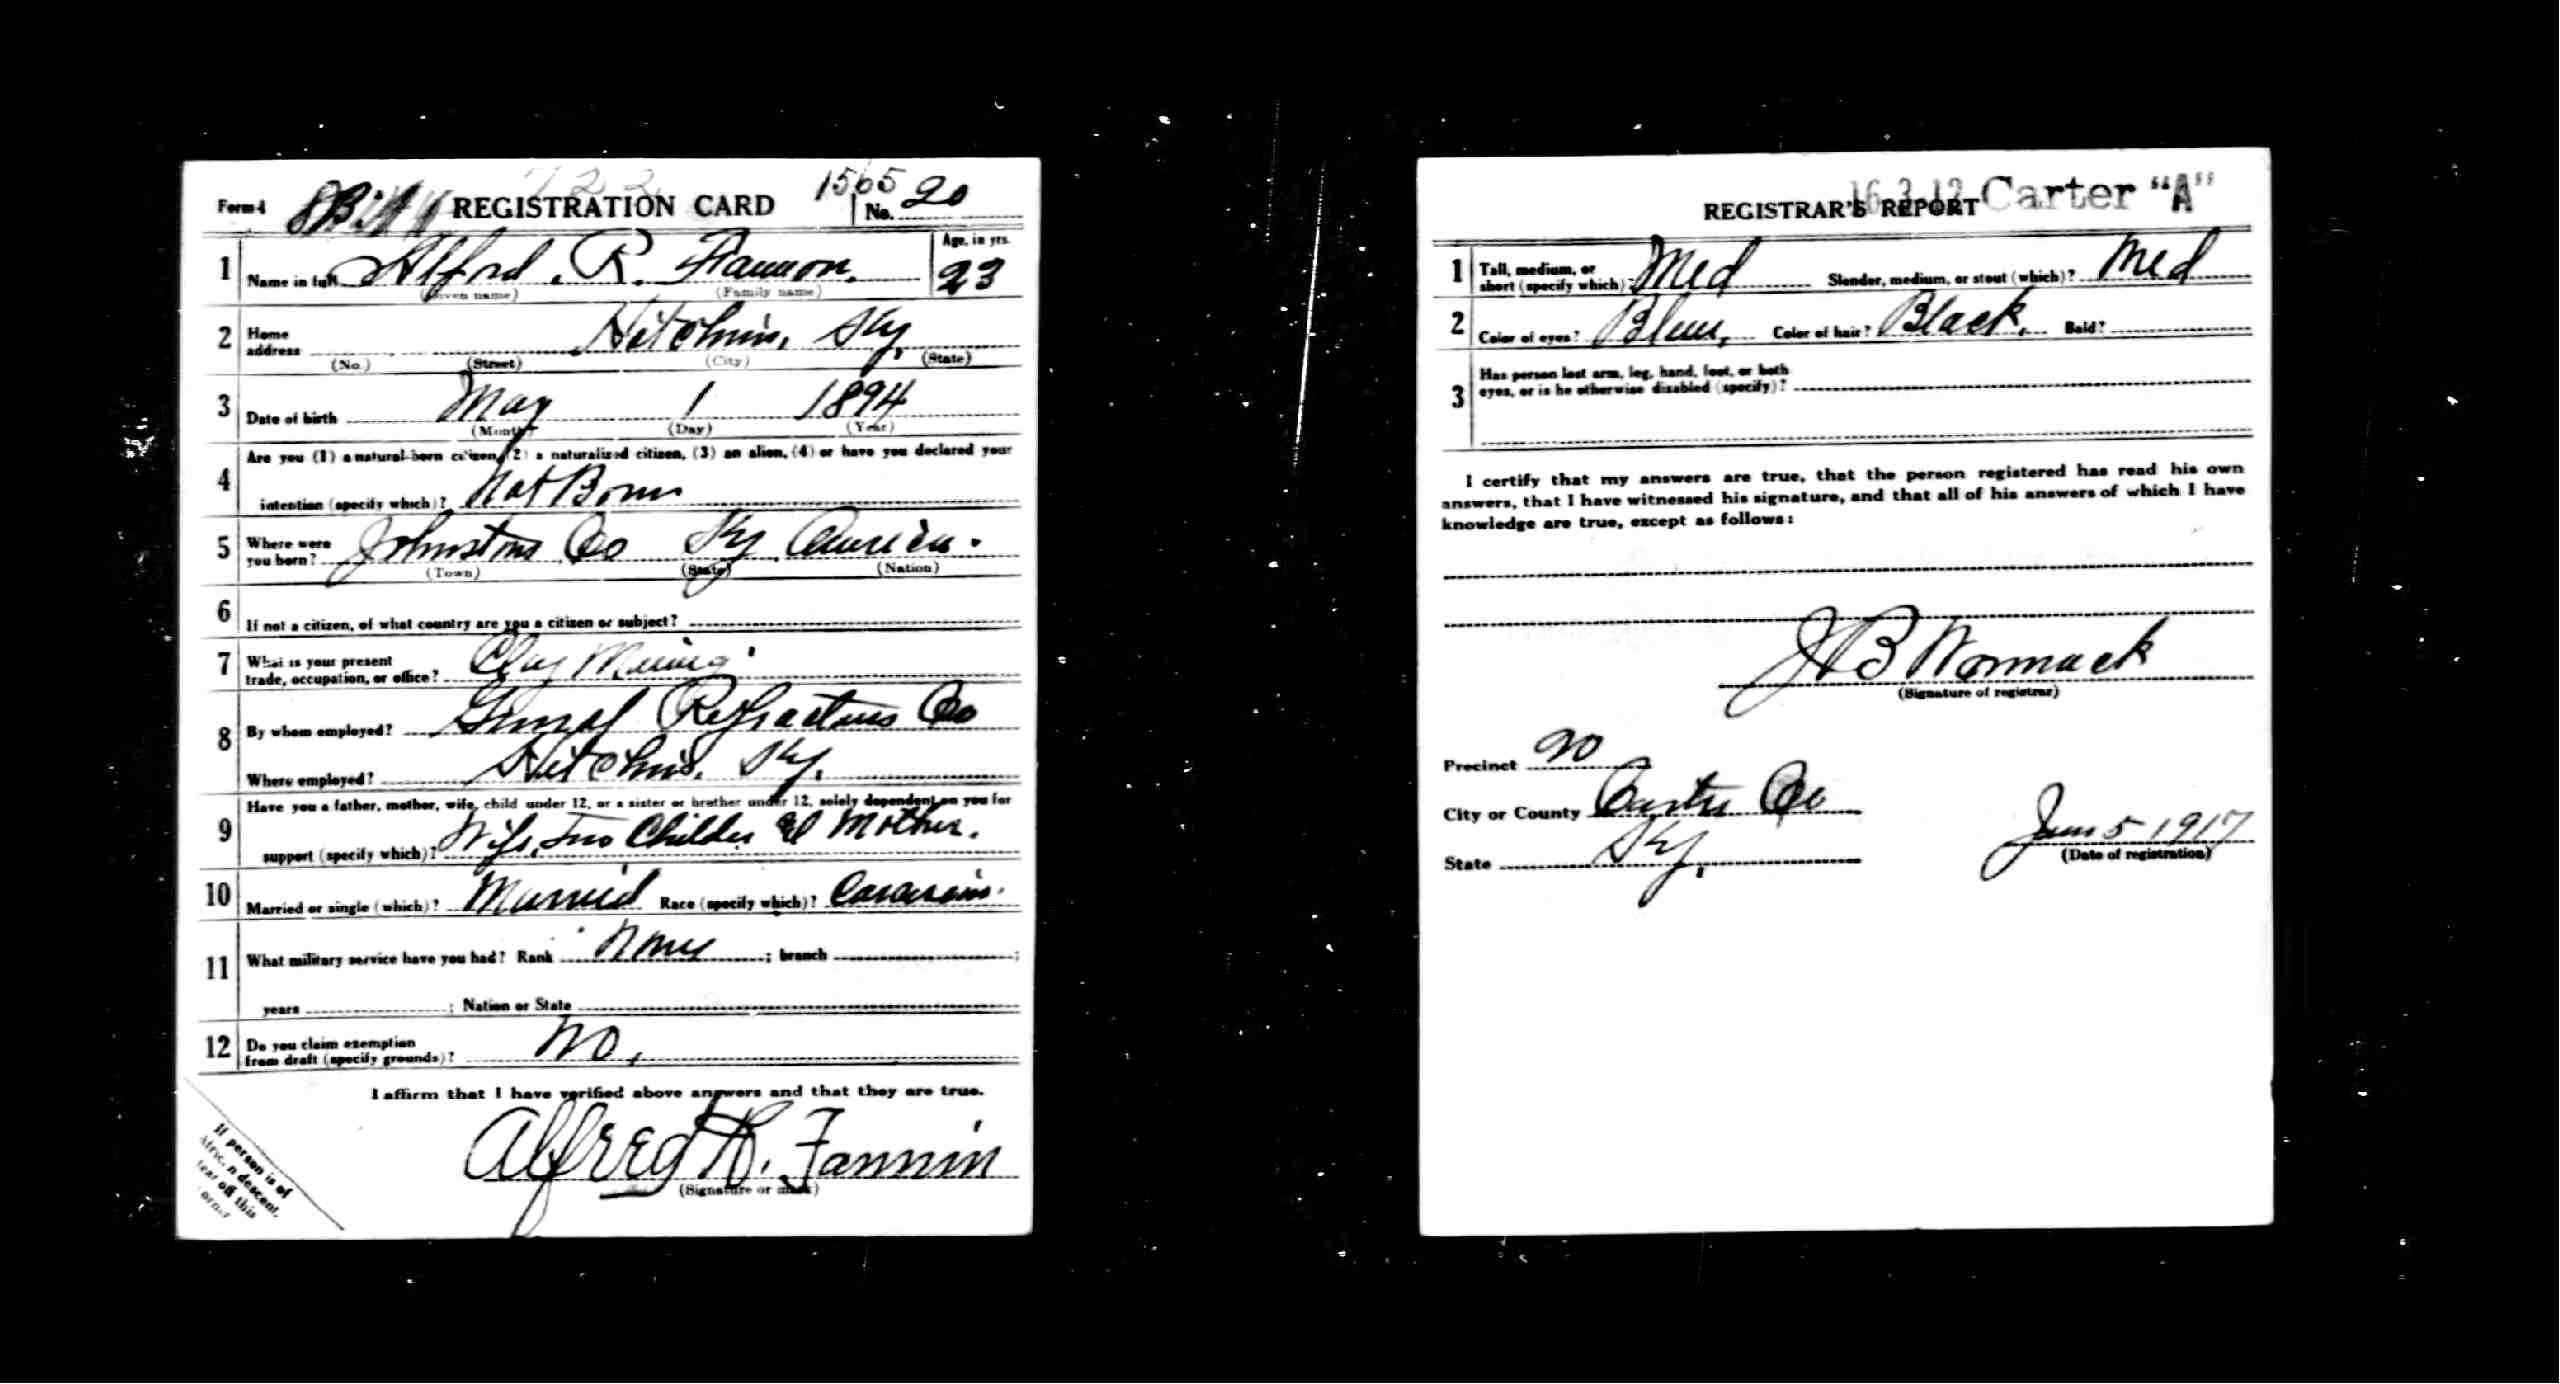 723
1565
Form 1 REGISTRATION CARD No. 20
1 Name in full Alford. R. Fannon. Age, in yrs. 23
(Given name) (Family name)
2 Home address Hitchins, Ky,
(No.) (Street) (City) (State)
3 Date of birth May 1 1894
(Month) (Day) (Year)
4 Are you (1) a natural-born citizen, (2) a naturalized citizen, (3) an alien, (4) or have you declared your
intention (specify which)? Nat Born
5 Where were you born? Johnston Co Ky America.
(Town) (State) (Nation)
6 If not a citizen, of what country are you a citizen or subject?
7 What is your present trade, occupation, or office? Clay Mining
8 By whom employed? General Refractories Co
Where employed? Hitchins, Ky.
9 Have you a father, mother, wife, child under 12, or a sister or brother under 12, solely dependent on you for
support (specify which)? Wife, Two Childer & Mother.
10 Married or single (which)? Married Race (specify which)? Caucasian.
11 What military service have you had? Rank None ; branch ;
years ; Nation or State
12 Do you claim exemption from draft (specify grounds)? No,
I affirm that I have verified above answers and that they are true.
Alfred R. Fannin
(Signature or mark)
If person is of
African descent,
tear off this
corner
16-3-12 Carter "A"
REGISTRAR'S REPORT
1 Tall, medium, or short (specify which)? Med Slender, medium, or stout (which)? Med
2 Color of eyes? Blue, Color of hair? Black, Bald?
3 Has person lost arm, leg, hand, foot, or both
eyes, or is he otherwise disabled (specify)?
I certify that my answers are true, that the person registered has read his own
answers, that I have witnessed his signature, and that all of his answers of which I have
knowledge are true, except as follows:
J B Wormack
(Signature of registrar)
Precinct 20
City or County Carter Co
State Ky,
June 5 1917
(Date of registration)